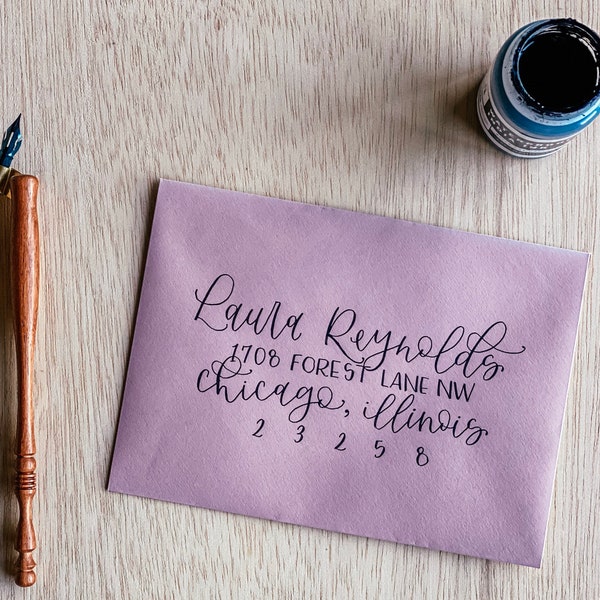 Laura Reynolds
1708 FOREST LANE NW
chicago, illinois
2 3 2 5 8